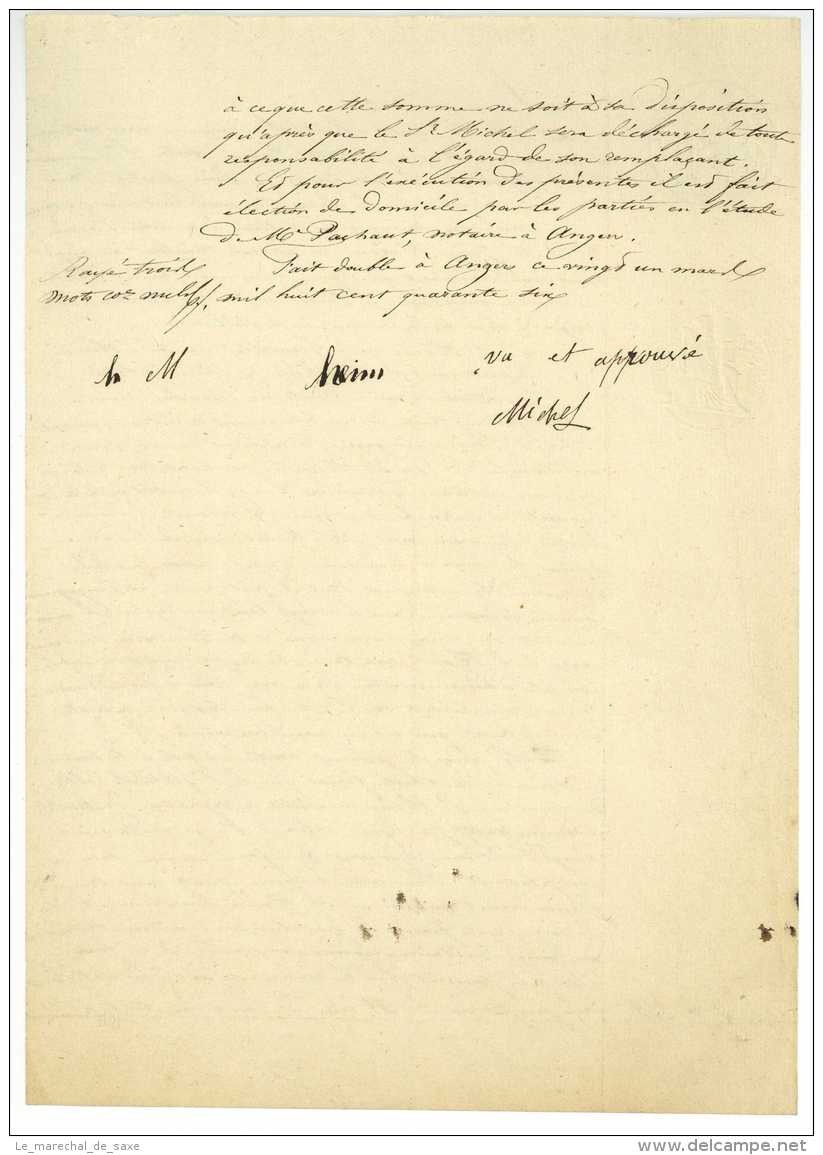 à ce que cette somme ne soit à sa disposition
qu'après que le Sr Michel sera déchargé de toute
responsabilité à l'égard de son remplaçant.
Et pour l'exécution des présentes il est fait
élection de domicile par les parties en l'étude
de Me Pachaut, notaire à Angers.
Fait double à Angers ce vingt un mars
mil huit cent quarante six
Rayé trois
mots coe nuls
vu et approuvé
h M
heim
Michel
Le_marechal_de_saxe
delcampe.net